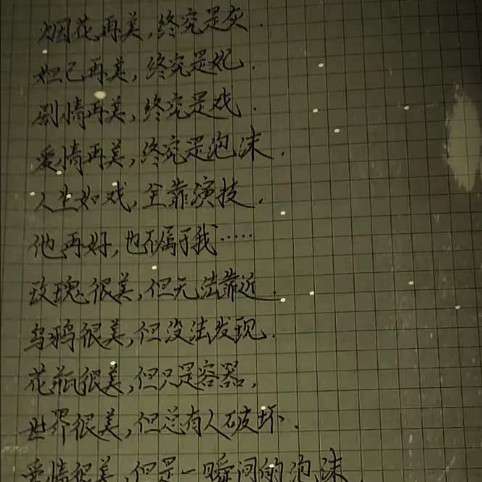 烟花再美,终究是灰.
妲己再美,终究是妃.
剧情再美,终究是戏.
爱情再美,终究是泡沫.
人生如戏,全靠演技.
他再好,也不属于我……
玫瑰很美,但无法靠近.
乌鸦很美,但没法发现.
花瓶很美,但只是容器.
世界很美,但总有人破坏.
爱情很美,但是一瞬间的泡沫